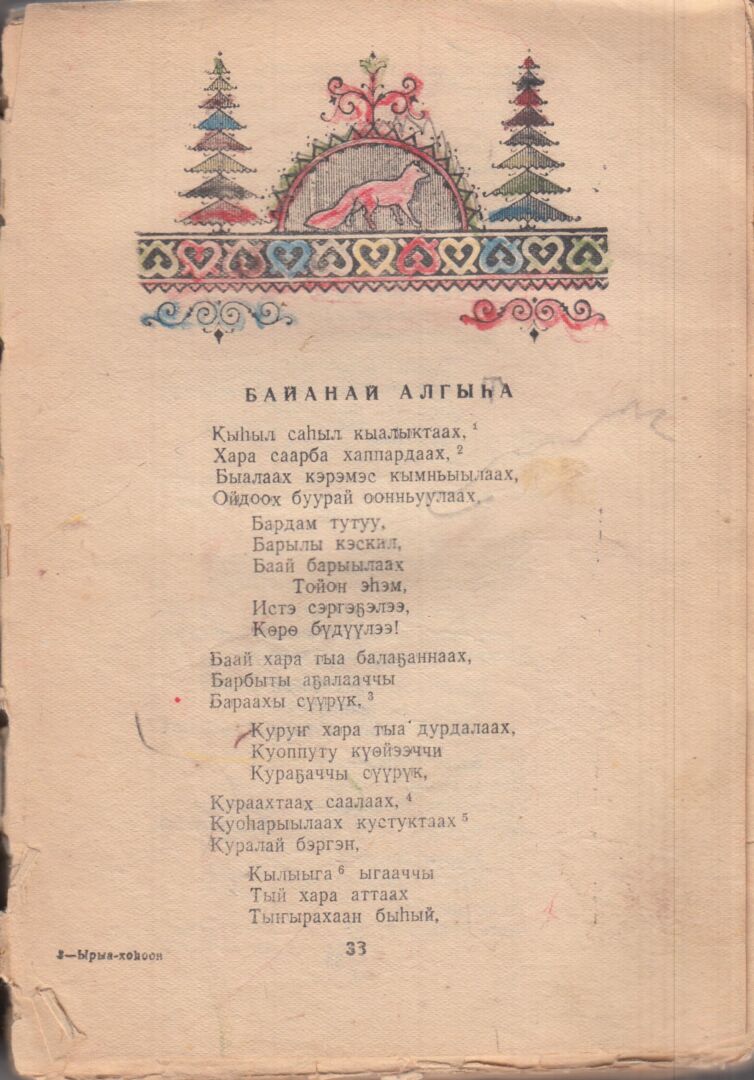 БАЙАНАЙ АЛГЫҺА
Қыһыл саһыл кыалыктаах, ¹
Хара саарба хаппардаах, ²
Быалаах кэрэмэс кымньыылаах,
Ойдоох буурай оонньуулаах,
Бардам тутуу,
Барылы кэскил,
Баай барыылаах
Тойон эһэм,
Истэ сэргэҕэлээ,
Көрө бүдүүлээ!
Баай хара тыа балаҕаннаах,
Барбыты аҕалааччы
Бараахы сүүрүк, ³
Куруҥ хара тыа дурдалаах,
Куоппуту күөйээччи
Кураҕаччы сүүрүк,
Кураахтаах саалаах, ⁴
Куоһарыылаах кустуктаах ⁵
Куралай бэргэн,
Кылыыга ⁶ ыгааччы
Тый хара аттаах
Тыҥырахаан быһый,
3—Ырыа-хоһоон
33